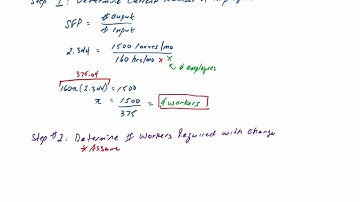 Step 1: Determine Current Number of
SFP = # Ouput
# Input
2.344 = 1500 loaves/mo
160 hrs/mo x x
# employees
375.04
160x(2.344) = 1500
x = 1500 = 4 workers
375
Step #2: Determine # Workers Required with change
*Assume